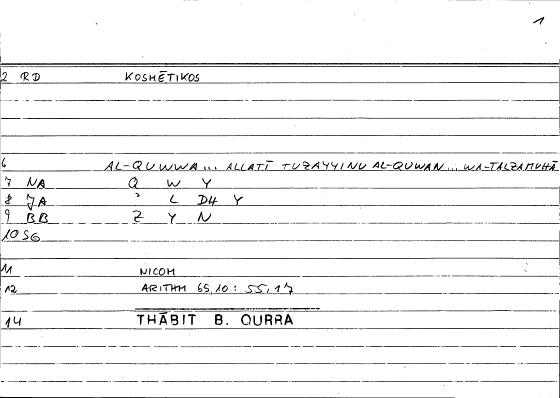 1
2 RD KOSMĒTIKOS
6 AL-QUWWA... ALLATĪ TUZAYYINU AL-QUWAN... WA-TALZAMUHĀ
7 NA Q W Y
8 JA ' L D4 Y
9 BB Z Y N
10 SG
11 NICOM
12 ARITHM 65,10 : 55,17
14 THĀBIT B. QURRA